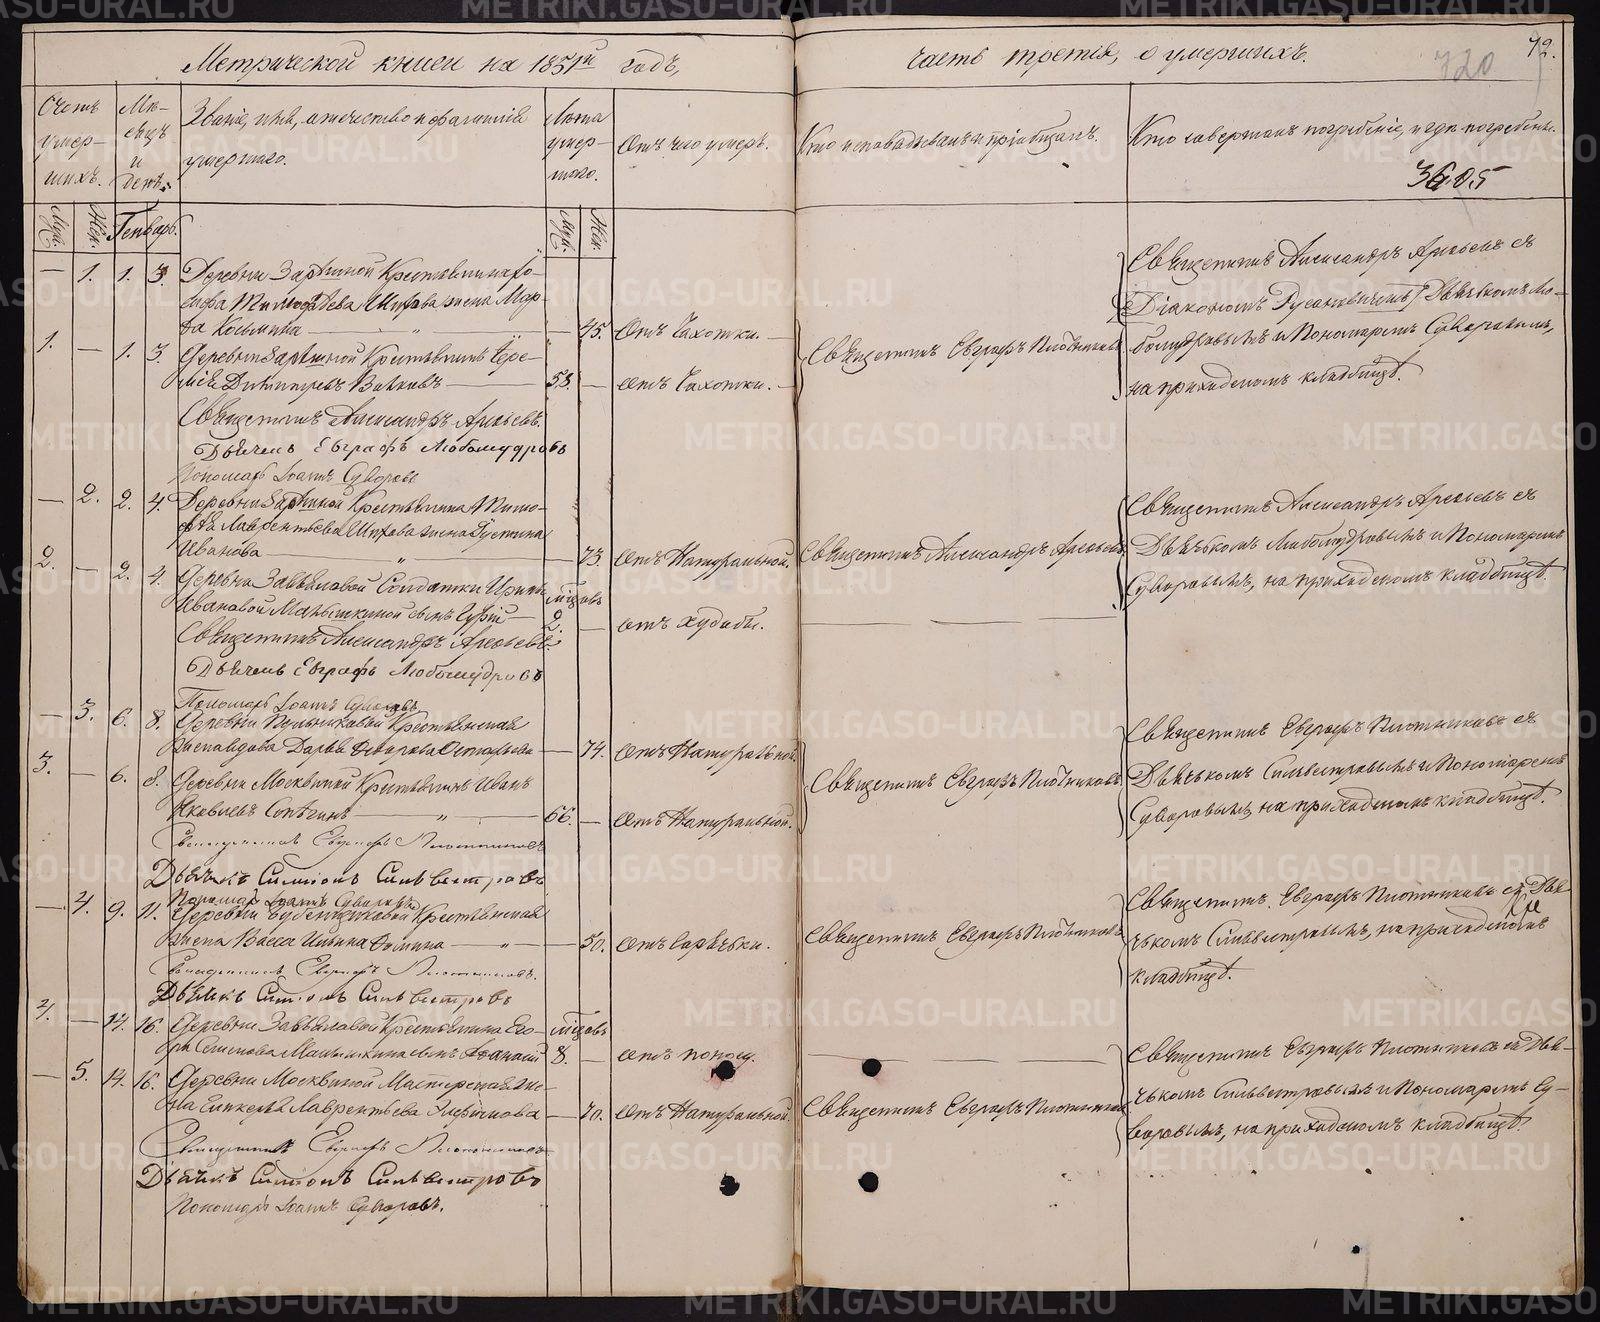 Метрической книги на 1851й годъ,
часть третія, о умершихъ.
720
42.
Счетъ умер-шихъ.
Мѣ-сяцъ и день.
Званіе, имя, отечество и фамилія умершаго.
Лѣта умер-шаго.
Отъ чего умеръ.
Кто исповѣдывалъ и пріобщалъ.
Кто совершалъ погребеніе, и гдѣ погребены.
3605
Муж.
Жен.
Генварь.
Муж.
Жен.
— 1. 1. 3. Деревни Крестьянина
жена Мар-
фа Козьмина — " — 45. Отъ Чахотки.
1. — 1. 3. Деревни Крестьянинъ Ере-
мѣй Димитріевъ — 58. — отъ Чахотки.
Священникъ Евграфъ Плотниковъ
Священникъ Александръ Арефьевъ съ
Діакономъ Дьячкомъ Лю-
бомудровымъ и Пономаремъ Суворовымъ,
на приходскомъ кладбищѣ.
Священникъ Александръ Арефьевъ.
Дьячекъ Евграфъ Любомудровъ
Пономарь Іоаннъ Суворовъ
— 2. 2. 4. Деревни Крестьянина Тимо-
фѣя Лаврентьева жена Іустина
Иванова — " — 73. Отъ Натуральной.
Священникъ Александръ Арефьевъ
Священникъ Александръ Арефьевъ съ
Дьячкомъ Любомудровымъ и Пономаремъ
Суворовымъ, на приходскомъ кладбищѣ.
2. — 2. 4. Деревни Завьяловой Солдатки Ирины мѣсяцовъ
Ивановой Манышкиной сынъ — 2. — отъ худобы.
Священникъ Александръ Арефьевъ
Дьячекъ Евграфъ Любомудровъ
Пономарь Іоаннъ Суворовъ
— 3. 6. 8. Деревни Крестьянская
Дарья — 74. Отъ Натуральной
3. — 6. 8. Деревни Москвиной Крестьянинъ Иванъ
Яковлевъ — " — 66. — Отъ Натуральной.
Священникъ Евграфъ Плотниковъ
Священникъ Евграфъ Плотниковъ съ
Дьячкомъ Сильвестровымъ и Пономаремъ
Суворовымъ, на приходскомъ кладбищѣ.
Священникъ Евграфъ Плотниковъ
Дьячекъ Симеонъ Сильвестровъ
Пономарь Іоаннъ Суворовъ
— 4. 9. 11. Деревни Крестьянская
жена Васса Ильина Фомина — " — 50. Отъ Горячки.
Священникъ Евграфъ Плотниковъ
Священникъ Евграфъ Плотниковъ съ Дья-
чкомъ Сильвестровымъ, на приходскомъ
кладбищѣ.
Священникъ Евграфъ Плотниковъ.
Дьячекъ Симеонъ Сильвестровъ
4. — 14. 16. Деревни Завьяловой Крестьянина Его- мѣсяцовъ
ра Семенова Манышкина сынъ 8. — отъ поносу.
— 5. 14. 16. Деревни Москвиной Мастерская же-
на Гликерья Лаврентьева — 70. Отъ Натуральной.
Священникъ Евграфъ Плотниковъ
Священникъ Евграфъ Плотниковъ съ Дья-
чкомъ Сильвестровымъ и Пономаремъ Су-
воровымъ, на приходскомъ кладбищѣ.
Священникъ Евграфъ Плотниковъ
Дьячекъ Симеонъ Сильвестровъ
Пономарь Іоаннъ Суворовъ.
METRIKI.GASO-URAL.RU